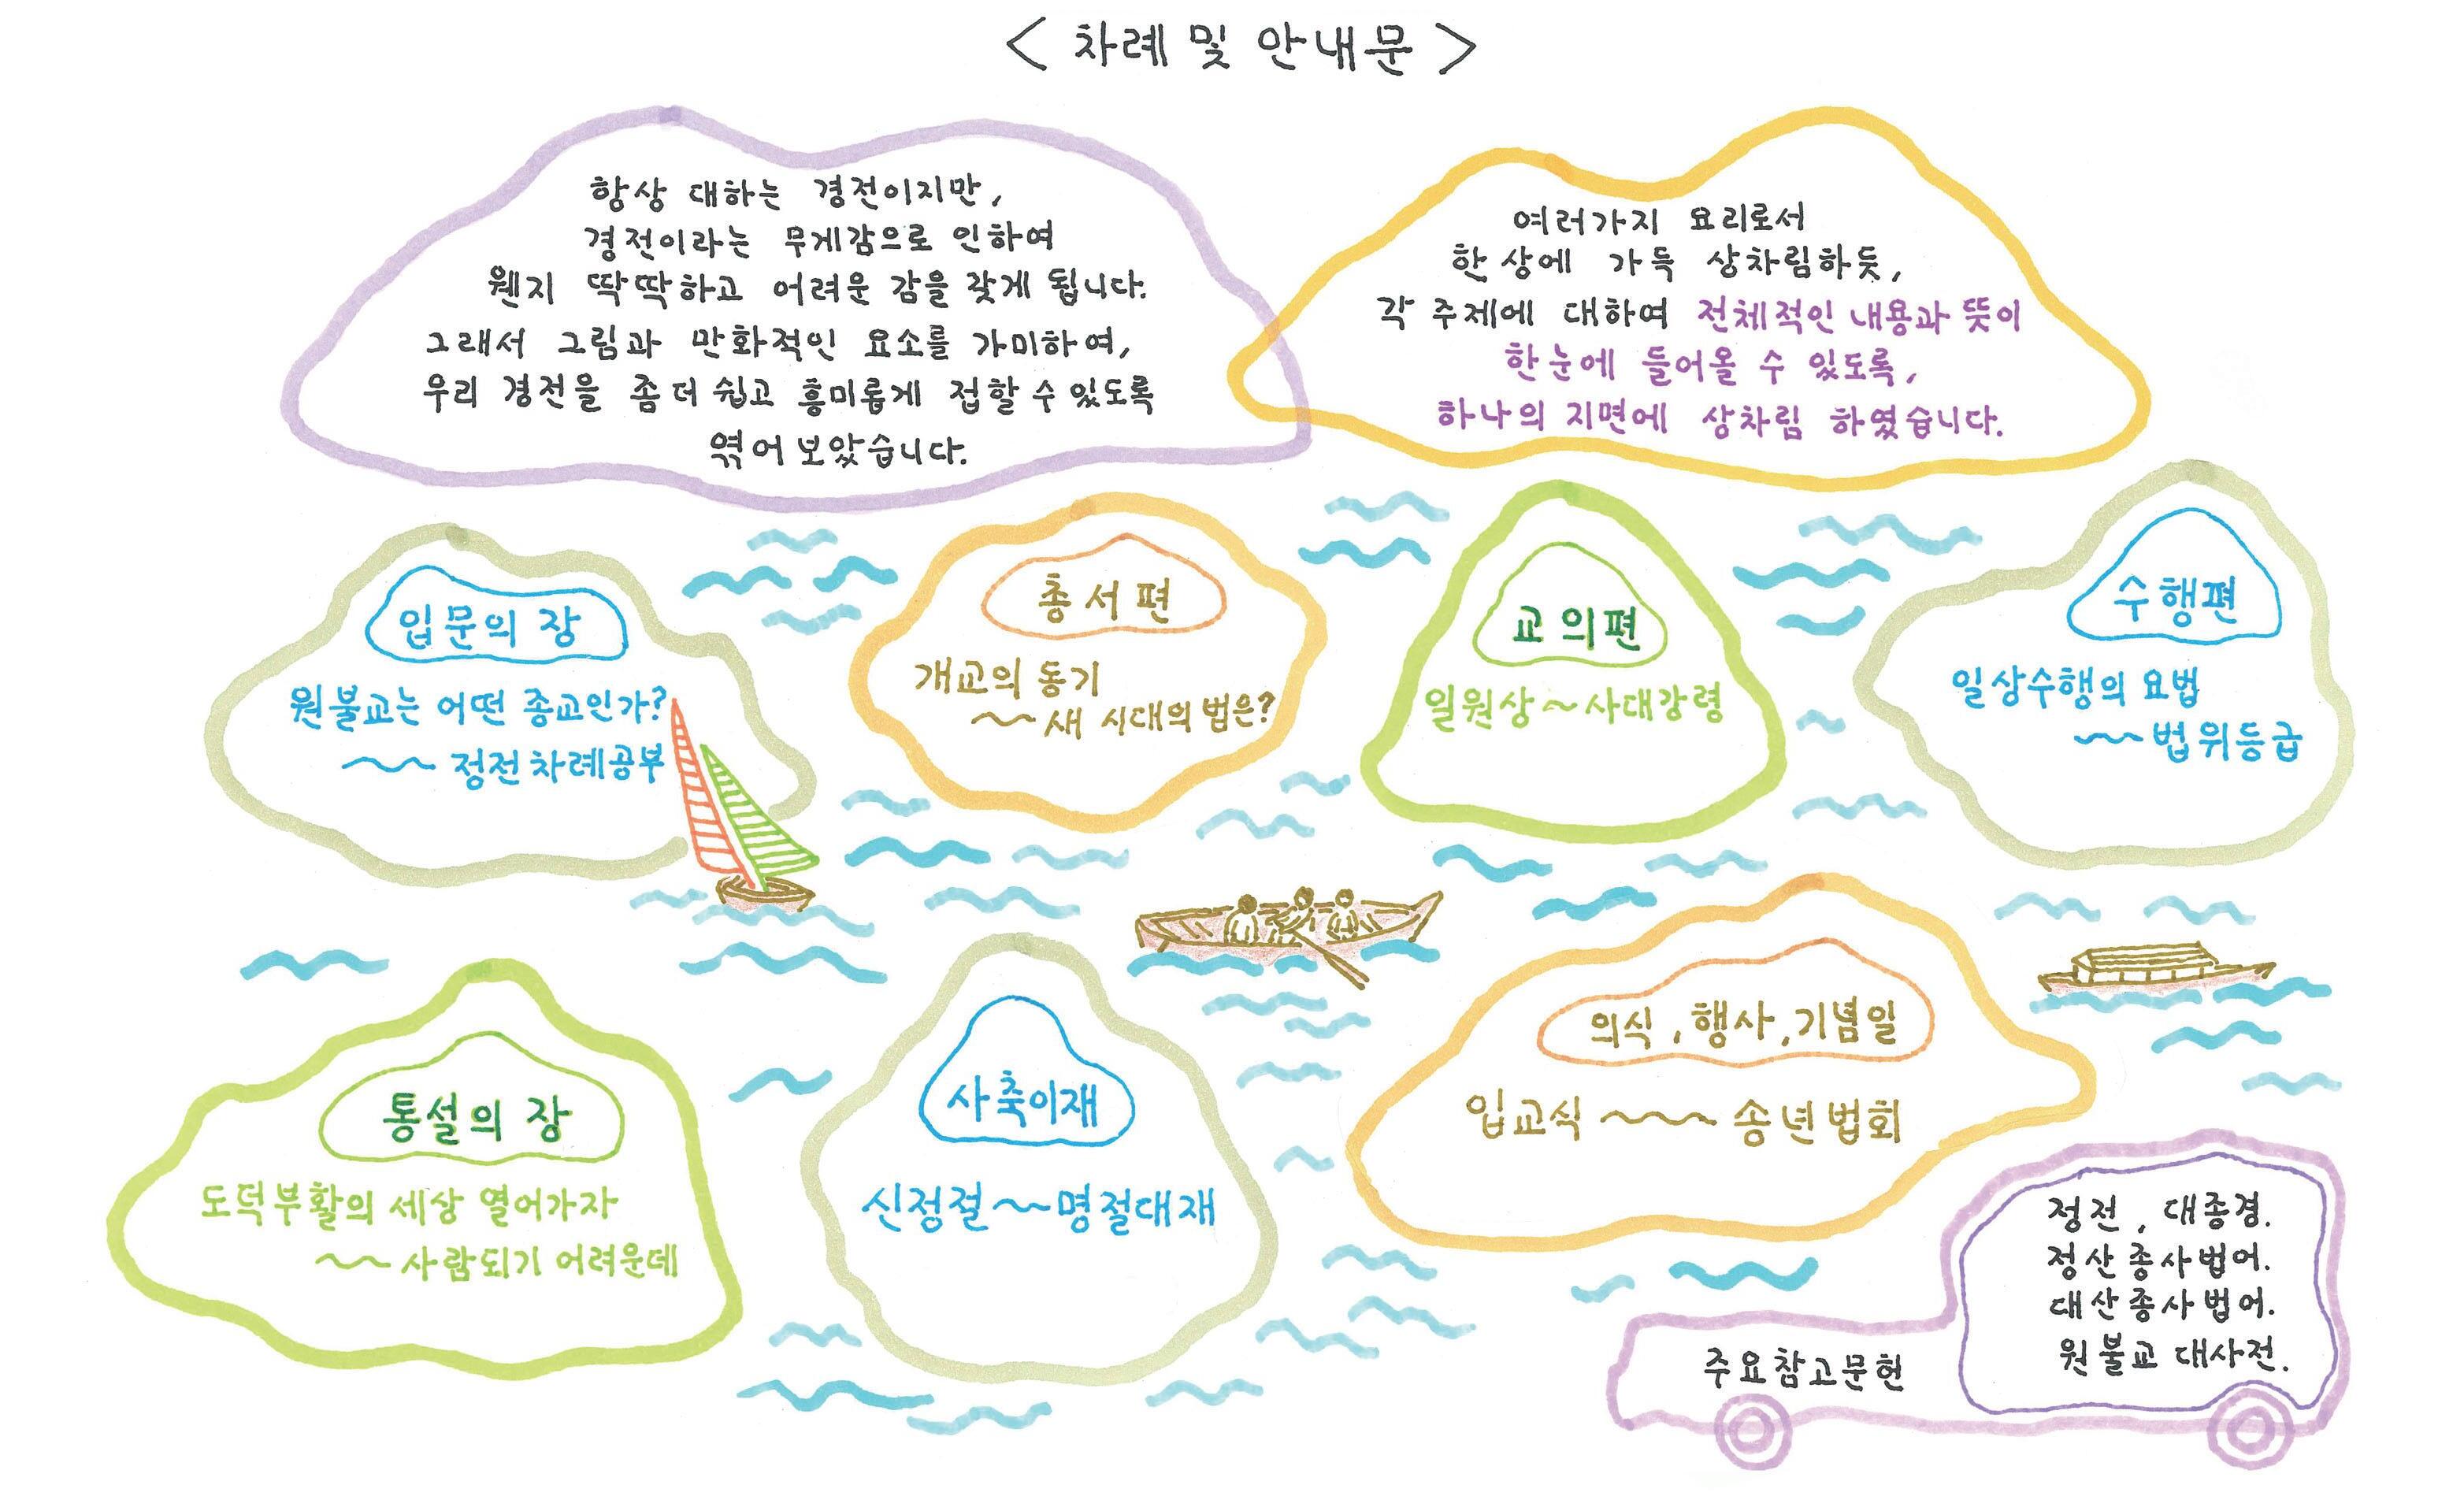 < 차례 및 안내문 >
항상 대하는 경전이지만,
경전이라는 무게감으로 인하여
웬지 딱딱하고 어려운 감을 갖게 됩니다.
그래서 그림과 만화적인 요소를 가미하여,
우리 경전을 좀 더 쉽고 흥미롭게 접할 수 있도록
엮어 보았습니다.
여러가지 요리로서
한 상에 가득 상차림하듯,
각 주제에 대하여 전체적인 내용과 뜻이
한 눈에 들어올 수 있도록,
하나의 지면에 상차림 하였습니다.
입문의 장
원불교는 어떤 종교인가?
~~ 정전 차례공부
총서편
개교의 동기
~~ 새 시대의 법은?
교의편
일원상 ~ 사대강령
수행편
일상수행의 요법
~~ 법위등급
통설의 장
도덕부활의 세상 열어가자
~~ 사람되기 어려운데
사축이재
신정절 ~~ 명절대재
의식, 행사, 기념일
입교식 ~~~ 송년법회
주요참고문헌
정전, 대종경.
정산종사법어.
대산종사법어.
원불교 대사전.